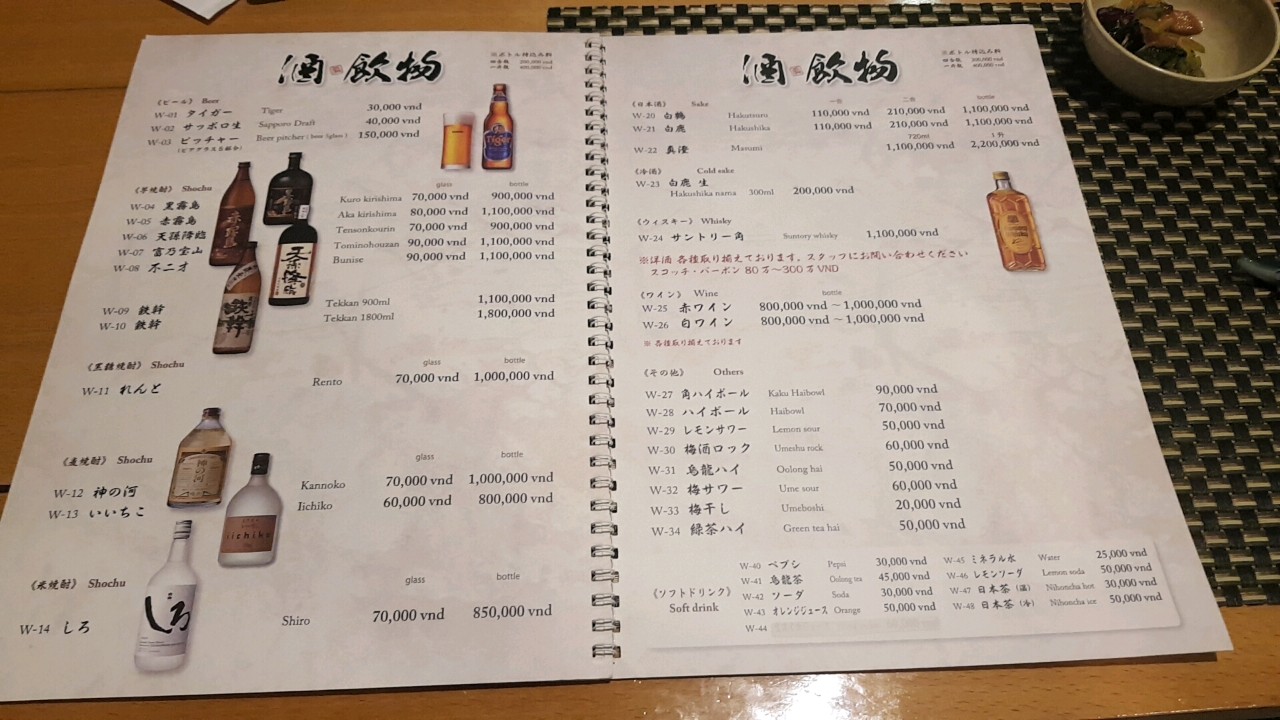 酒 飲物
※ボトル持込み料
四合瓶 200,000 vnd
一升瓶 400,000 vnd
《ビール》 Beer
W-01 タイガー Tiger 30,000 vnd
W-02 サッポロ生 Sapporo Draft 40,000 vnd
W-03 ピッチャー Beer pitcher 150,000 vnd
《芋焼酎》 Shochu glass bottle
W-04 黒霧島 Kuro kirishima 70,000 vnd 900,000 vnd
W-05 赤霧島 Aka kirishima 80,000 vnd 1,100,000 vnd
W-06 天孫降臨 Tensonkourin 70,000 vnd 900,000 vnd
W-07 富乃宝山 Tominohouzan 90,000 vnd 1,100,000 vnd
W-08 不二才 Bunise 90,000 vnd 1,100,000 vnd
W-09 鉄幹 Tekkan 900ml 1,100,000 vnd
W-10 鉄幹 Tekkan 1800ml 1,800,000 vnd
《黒糖焼酎》 Shochu glass bottle
W-11 れんと Rento 70,000 vnd 1,000,000 vnd
《麦焼酎》 Shochu glass bottle
W-12 神の河 Kannoko 70,000 vnd 1,000,000 vnd
W-13 いいちこ Iichiko 60,000 vnd 800,000 vnd
《米焼酎》 Shochu glass bottle
W-14 しろ Shiro 70,000 vnd 850,000 vnd
Tiger
鉄幹
神の河
iichiko
しろ
酒 飲物
※ボトル持込み料
四合瓶 200,000 vnd
一升瓶 400,000 vnd
《日本酒》 Sake 一合 二合 bottle
W-20 白鶴 Hakutsuru 110,000 vnd 210,000 vnd 1,100,000 vnd
W-21 白鹿 Hakushika 110,000 vnd 210,000 vnd 1,100,000 vnd
720ml 1升
W-22 真澄 Masumi 1,100,000 vnd 2,200,000 vnd
《冷酒》 Cold sake
W-23 白鹿 生
Hakushika nama 300ml 200,000 vnd
《ウィスキー》 Whisky
W-24 サントリー角 Suntory whisky 1,100,000 vnd
※洋酒 各種取り揃えております。スタッフにお問い合わせください
スコッチ・バーボン 80万～300万VND
《ワイン》 Wine bottle
W-25 赤ワイン 800,000 vnd ～ 1,000,000 vnd
W-26 白ワイン 800,000 vnd ～ 1,000,000 vnd
※ 各種取り揃えております
《その他》 Others
W-27 角ハイボール Kaku Haibowl 90,000 vnd
W-28 ハイボール Haibowl 70,000 vnd
W-29 レモンサワー Lemon sour 50,000 vnd
W-30 梅酒ロック Umeshu rock 60,000 vnd
W-31 烏龍ハイ Oolong hai 50,000 vnd
W-32 梅サワー Ume sour 60,000 vnd
W-33 梅干し Umeboshi 20,000 vnd
W-34 緑茶ハイ Green tea hai 50,000 vnd
《ソフトドリンク》
Soft drink
W-40 ペプシ Pepsi 30,000 vnd
W-41 烏龍茶 Oolong tea 45,000 vnd
W-42 ソーダ Soda 30,000 vnd
W-43 オレンジジュース Orange 50,000 vnd
W-44
W-45 ミネラル水 Water 25,000 vnd
W-46 レモンソーダ Lemon soda 50,000 vnd
W-47 日本茶（温） Nihoncha hot 30,000 vnd
W-48 日本茶（冷） Nihoncha ice 50,000 vnd